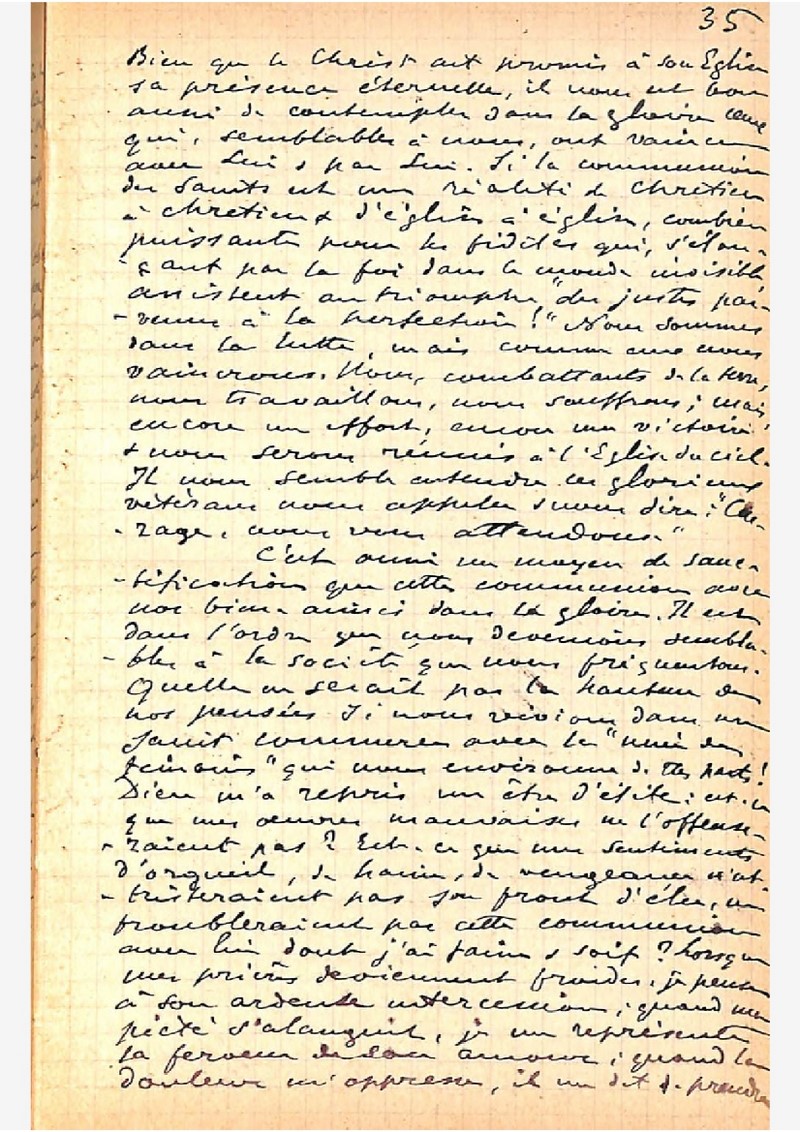 35
Bien que le Christ ait promis à son Eglise
sa présence éternelle, il nous est bon
aussi de contempler dans la gloire ceux
qui, semblables à nous, ont vaincu
avec Lui & par Lui. Si la communion
des Saints est une réalité de chrétien
à chrétien & d'église à église, combien
puissante pour les fidèles qui, s'élan-
-çant par la foi dans le monde invisible
assistent au triomphe "des justes par-
-venus à la perfection!" Nous sommes
dans la lutte, mais comme eux nous
vaincrons. Nous, combattants de la terre,
nous travaillons, nous souffrons; mais
encore un effort, encore une victoire
& nous serons réunis à l'Eglise du ciel.
Il nous semble entendre ces glorieux
vétérans nous appeler & nous dire: "Cou-
-rage, nous vous attendons."
C'est aussi un moyen de sanc-
-tification que cette communion avec
nos bien-aimés dans la gloire. Il est
dans l'ordre que nous devenions sembla-
-bles à la société que nous fréquentons.
Quelle ne serait pas la hauteur de
nos pensées si nous vivions dans un
saint commerce avec la "nuée de
témoins" qui nous environne de ttes parts!
Dieu m'a repris un être d'élite: est-ce
que mes œuvres mauvaises ne l'offense-
-raient pas? Est-ce que mes sentiments
d'orgueil, de haine, de vengeance n'at-
-tristeraient pas son front d'élu, ne
troubleraient pas cette communion
avec lui dont j'ai faim & soif? Lorsque
mes prières deviennent froides, je pense
à son ardente intercession; quand ma
piété s'alanguit, je me représente
la ferveur de son amour; quand la
douleur m'oppresse, il me dit de prendre